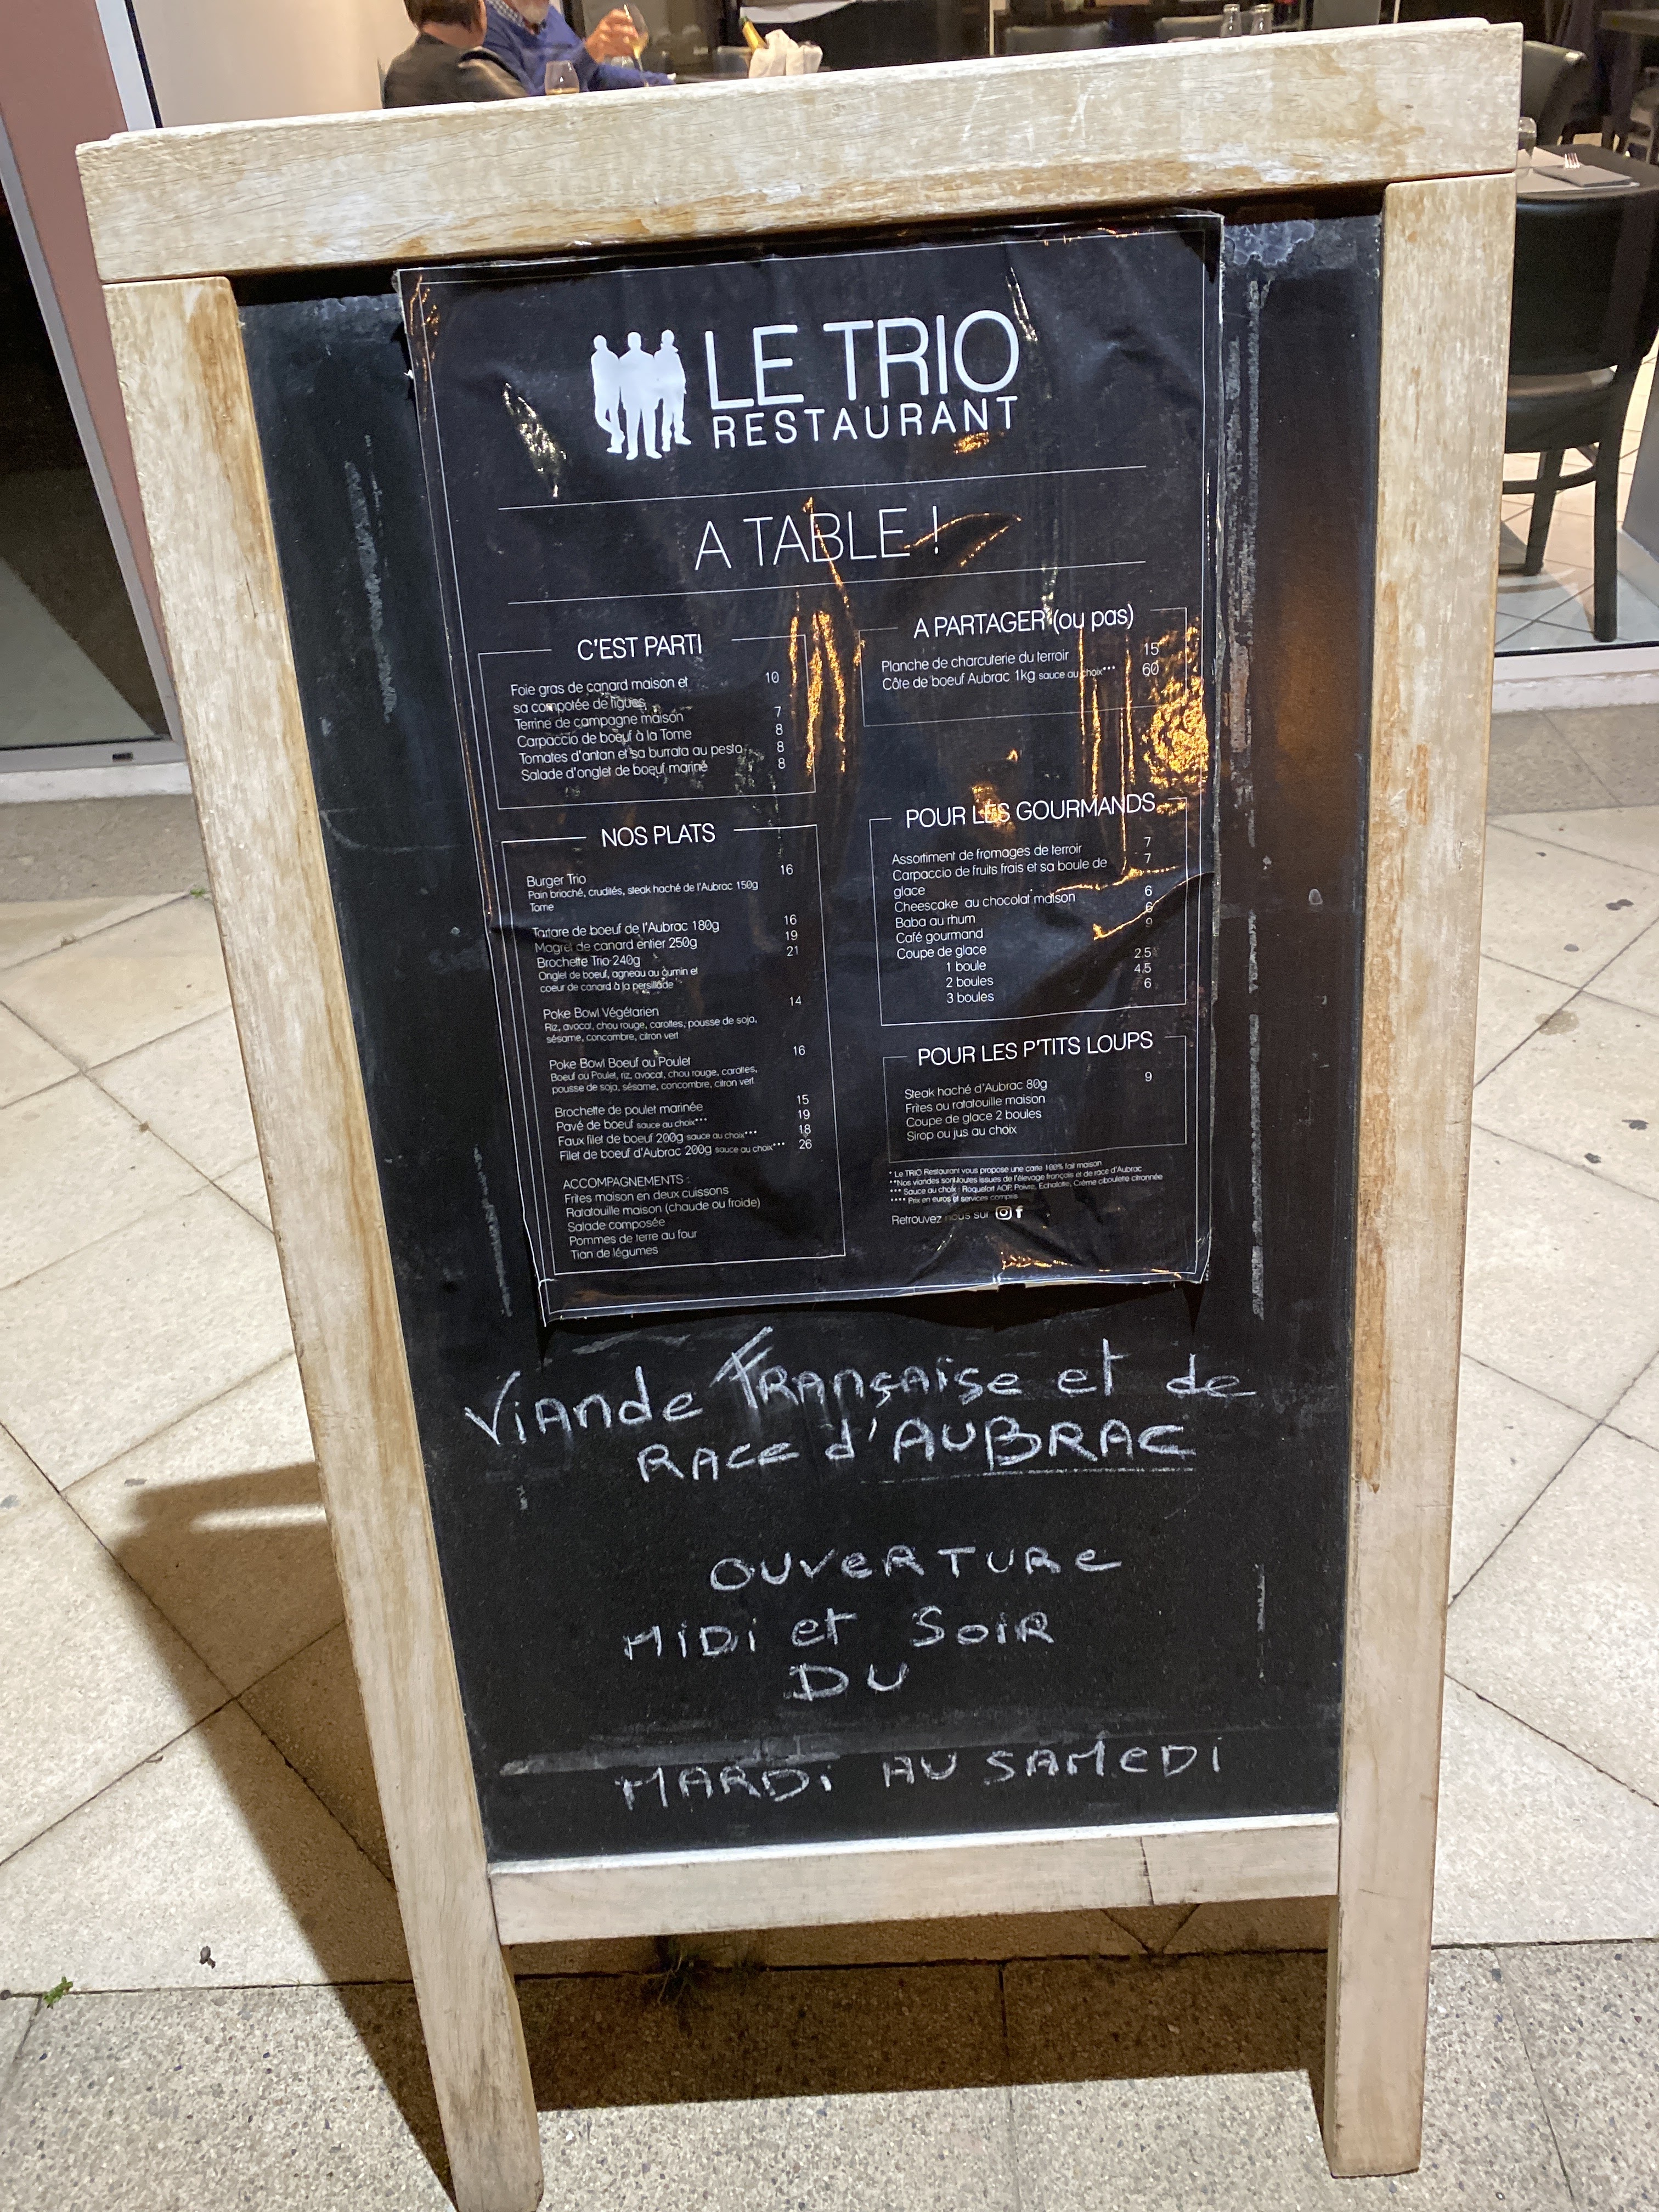 LE TRIO
RESTAURANT
A TABLE !
C'EST PARTI
Foie gras de canard maison et 10
sa compotée de figues
Terrine de campagne maison 7
Carpaccio de boeuf à la Tome 8
Tomates d'antan et sa burrata au pesto 8
Salade d'onglet de boeuf mariné 8
NOS PLATS
Burger Trio 16
Pain brioché, crudités, steak haché de l'Aubrac 150g
Tome
Tartare de boeuf de l'Aubrac 180g 16
Magret de canard entier 250g 19
Brochette Trio 240g 21
Onglet de boeuf, agneau au cumin et
coeur de canard à la persillade
Poke Bowl Végétarien 14
Riz, avocat, chou rouge, carottes, pousse de soja,
sésame, concombre, citron vert
Poke Bowl Boeuf ou Poulet 16
Boeuf ou Poulet, riz, avocat, chou rouge, carottes,
pousse de soja, sésame, concombre, citron vert
Brochette de poulet marinée 15
Pavé de boeuf sauce au choix*** 19
Faux filet de boeuf 200g sauce au choix*** 18
Filet de boeuf d'Aubrac 200g sauce au choix*** 26
ACCOMPAGNEMENTS :
Frites maison en deux cuissons
Ratatouille maison (chaude ou froide)
Salade composée
Pommes de terre au four
Tian de légumes
A PARTAGER (ou pas)
Planche de charcuterie du terroir 15
Côte de boeuf Aubrac 1kg sauce au choix*** 60
POUR LES GOURMANDS
Assortiment de fromages de terroir 7
Carpaccio de fruits frais et sa boule de 7
glace
Cheescake au chocolat maison 6
Baba au rhum 6
Café gourmand
Coupe de glace
1 boule 2.5
2 boules 4.5
3 boules 6
POUR LES P'TITS LOUPS
Steak haché d'Aubrac 80g 9
Frites ou ratatouille maison
Coupe de glace 2 boules
Sirop ou jus au choix
* Le TRIO Restaurant vous propose une carte 100% fait maison
**Nos viandes sont toutes issues de l'élevage français et de race d'Aubrac
*** Sauce au choix : Roquefort AOP, Poivre, Echalote, Crème ciboulette citronnée
**** Prix en euros et services compris
Retrouvez nous sur
Viande Française et de
RACe d'AUBRAC
OUVeRTURe
MiDi et SOIR
DU
MARDi AU SAMeDI